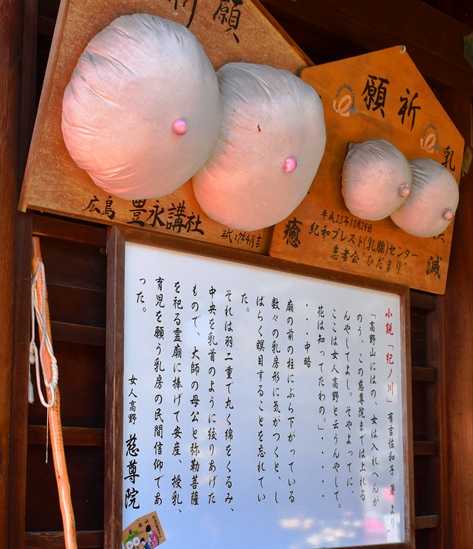 祈願
広島 豊永講社
祈願
乳
滅
平成23年12月14日
紀和ブレスト(乳腺)センター
患者会"ひだまり"
癒
小説「紀ノ川」 有吉佐和子 著より
「高野山にはの、女は入れへんが
のう、この慈尊院までは上れる
んやしてよし。そやよってに
ここは女人高野と云うんやして。
花は知ってたわの」
・・・中略・・・・・
廟の前の柱にぶら下がっている
数々の乳房形に気がつくと、し
ばらく瞑目することを忘れてい
た。
それは羽二重で丸く綿をくるみ、
中央を乳首のように絞りあげた
もので、大師の母公と弥勒菩薩
を祀る霊廟に捧げて安産、授乳、
育児を願う乳房の民間信仰であ
った。
女人高野 慈尊院